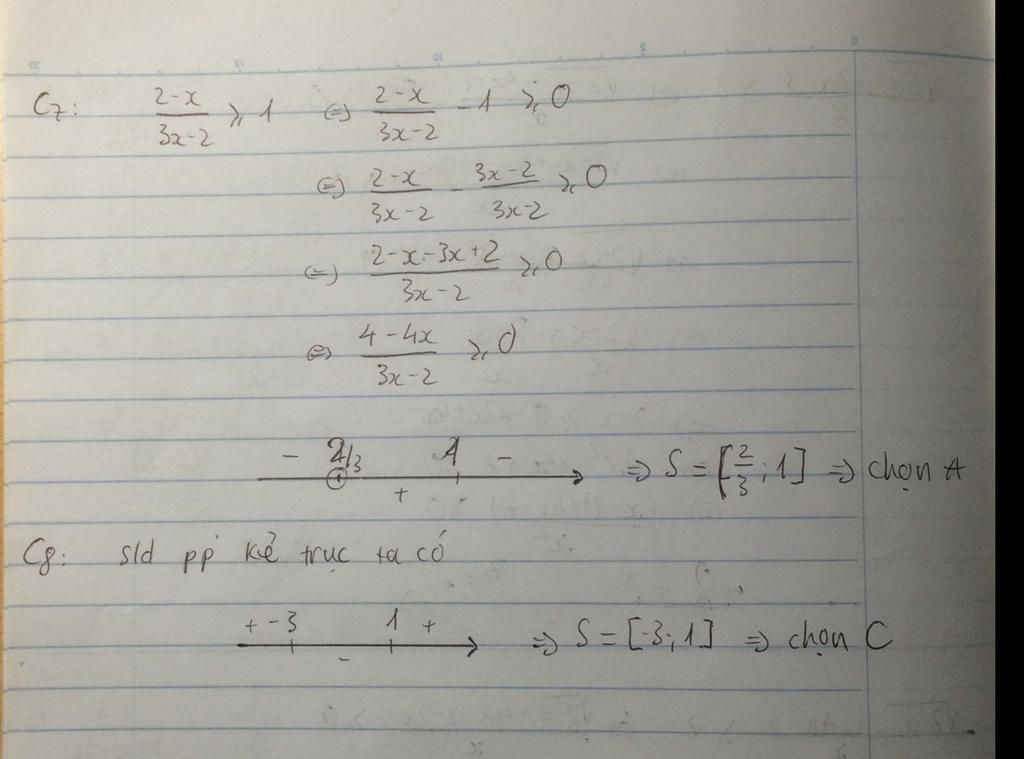 C7: (2-x)/(3x-2) ⩾ 1 (=) (2-x)/(3x-2) - 1 ⩾ 0
(=) (2-x)/(3x-2) - (3x-2)/(3x-2) ⩾ 0
(=) (2-x-3x+2)/(3x-2) ⩾ 0
(=) (4-4x)/(3x-2) ⩾ 0
- 2/3 + 1 - => S = [2/3; 1] => chọn A
C8: sld pp kẻ trục ta có
+ -3 - 1 + => S = [-3; 1] => chọn C